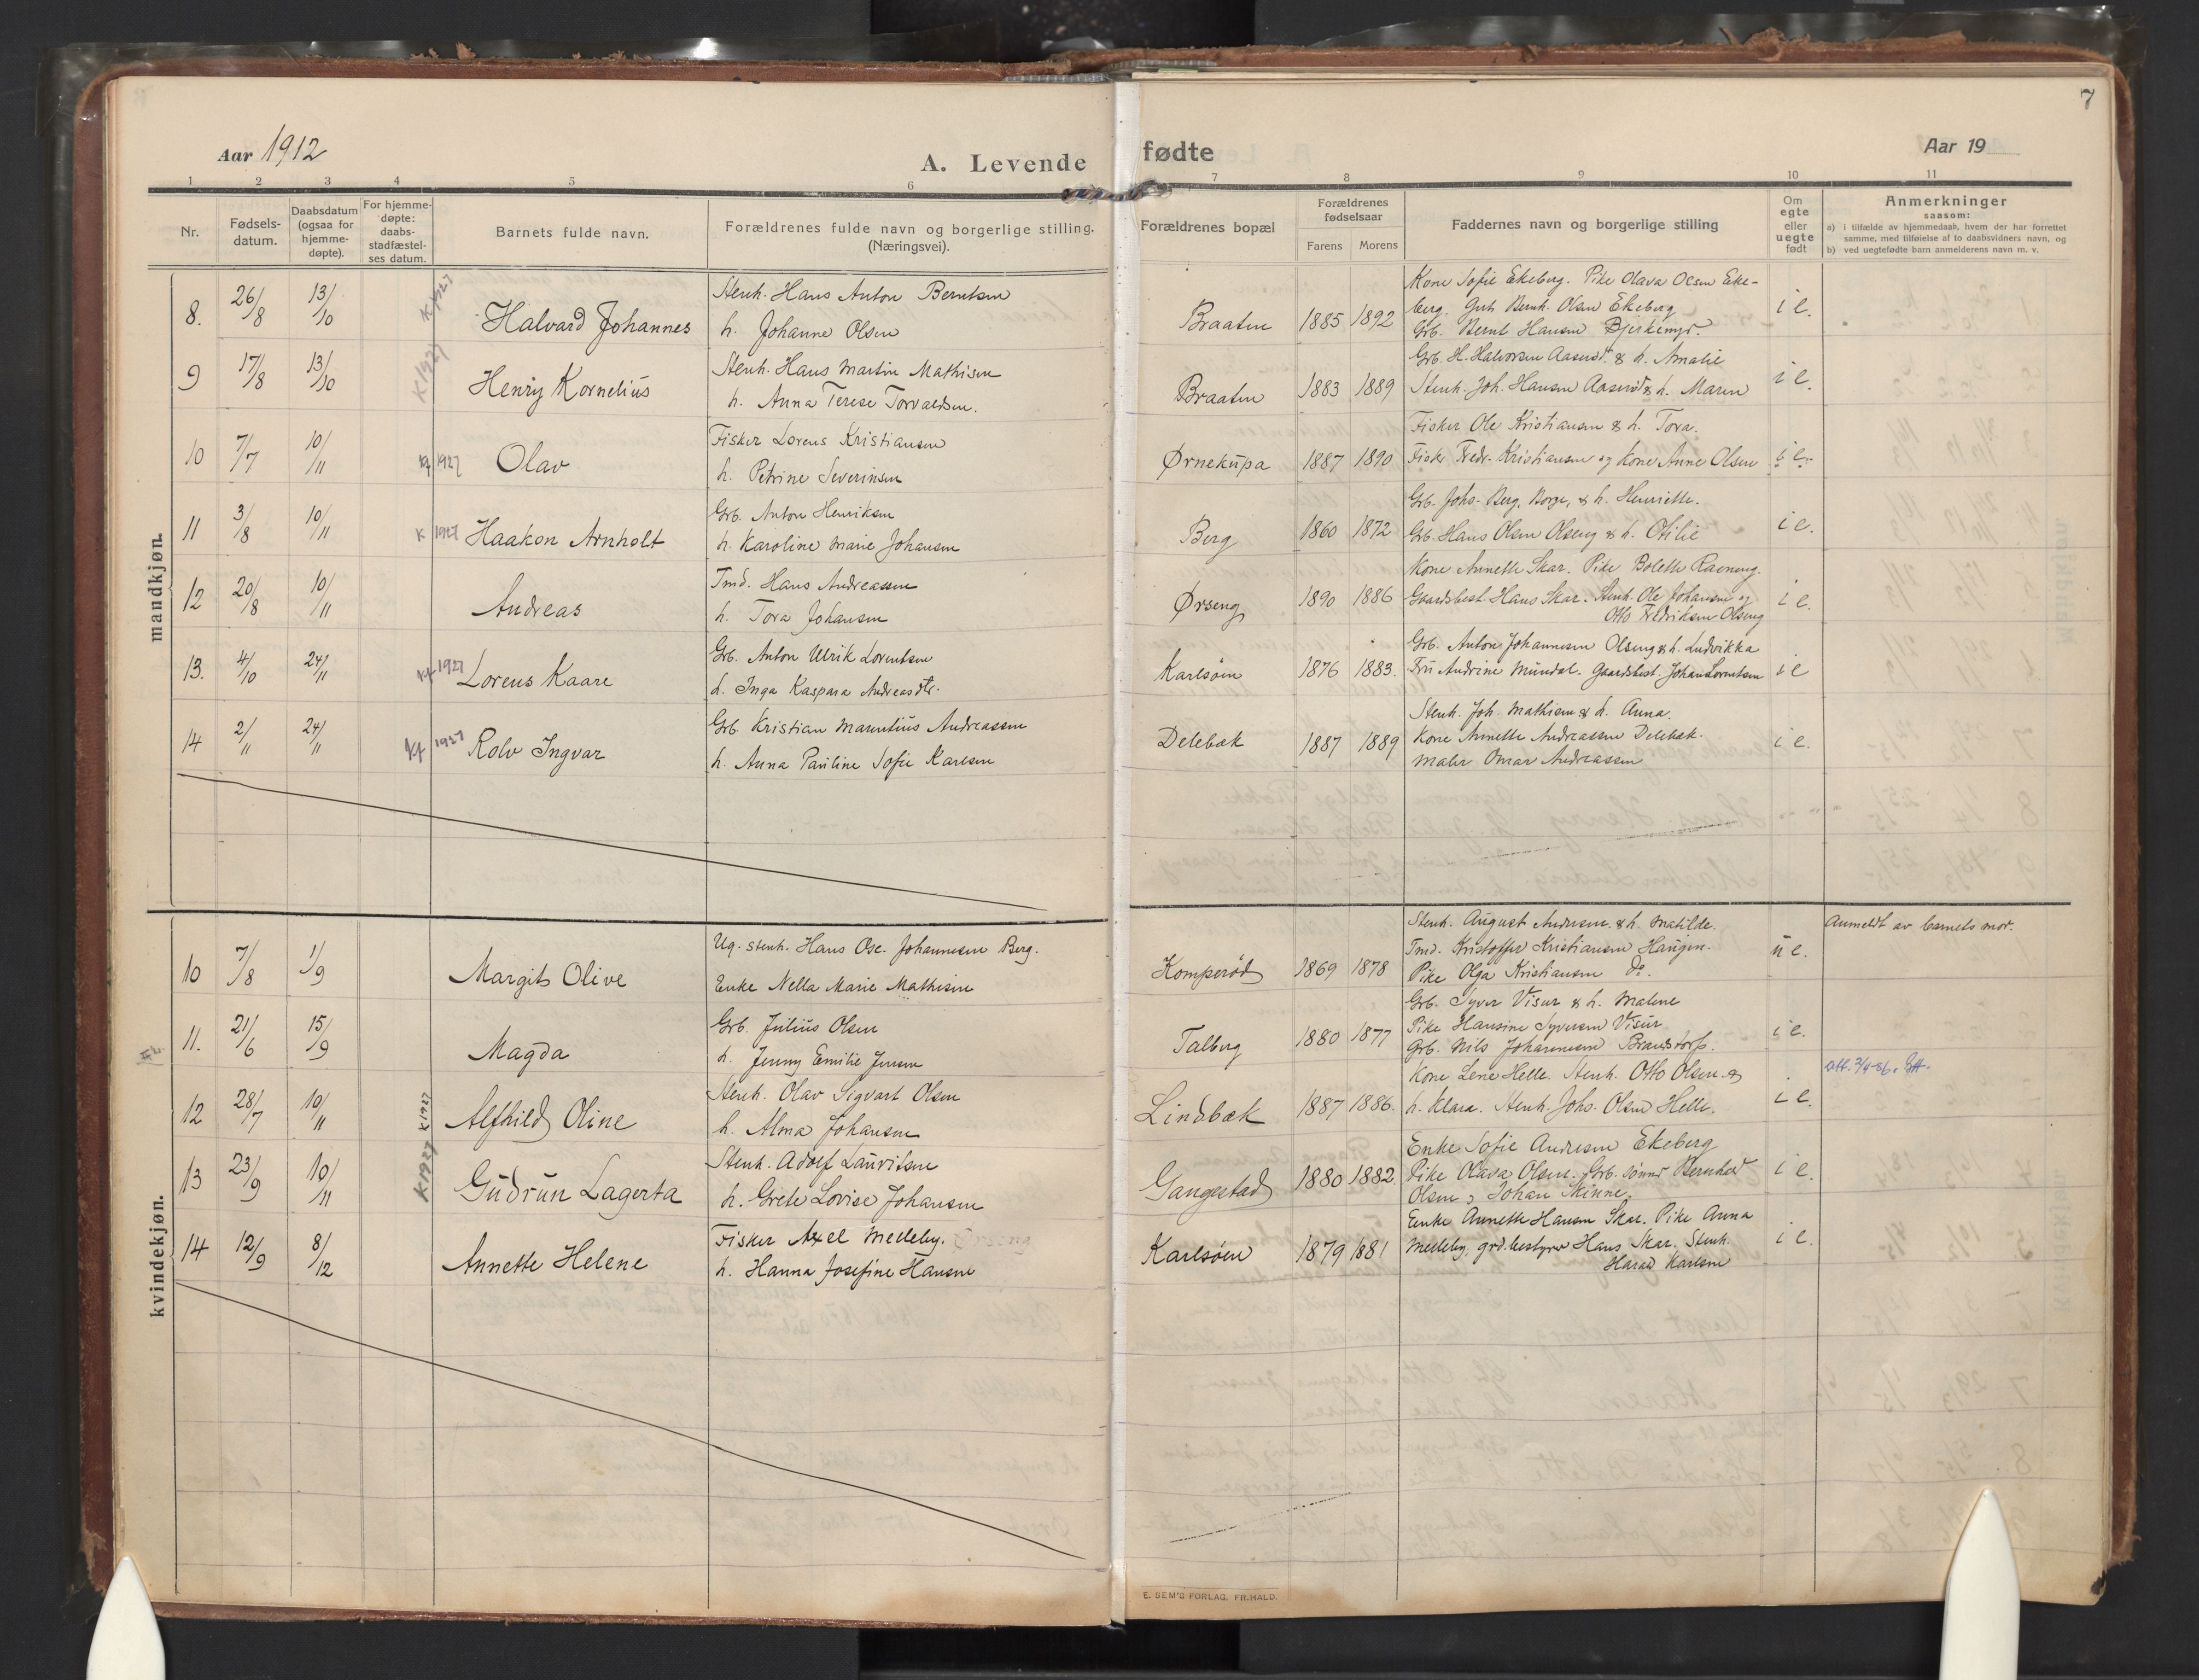 7
Aar 1912
A. Levende
fødte
Aar 19
1 2 3 4 5 6 7 8 9 10 11
Nr.
Fødsels-
datum.
Daabsdatum
(ogsaa for
hjemme-
døpte).
For hjemme-
døpte:
daabs-
stadfæstel-
ses datum.
Barnets fulde navn.
Forældrenes fulde navn og borgerlige stilling.
(Næringsvei).
Forældrenes bopæl
Forældrenes
fødselsaar
Farens Morens
Faddernes navn og borgerlige stilling
Om
egte
eller
uegte
født
Anmerkninger
saasom:
a) i tilfælde av hjemmedaab, hvem der har forrettet
samme, med tilføielse af to daabsvidners navn, og
b) ved uegtefødte barn anmelderens navn m. v.
mandkjøn.
8. 26/8 13/10 K 1927 Halvard Johannes
Stenh. Hans Anton Berntsen
h. Johanne Olsen
Braaten 1885 1892
Kone Sofie Ekeberg. Pike Olava Olsen Eke-
berg. Gut Bernh. Olsen Ekeberg
Grb. Bernt Hansen Bjerkemyr.
i e.
9 17/8 13/10 K 1927 Henry Kornelius
Stenh. Hans Martin Mathisen
h. Anna Terese Torvaldsen.
Braaten 1883 1889
Grb. H. Halvorsen Aaserød & h. Amalie
Stenh. Joh. Hansen Aaserød & h. Maren
i e.
10 7/7 10/11 Kf 1927 Olav
Fisker Lorens Kristiansen
h. Petrine Severinsen
Ørnekupa 1887 1890
Fisker Ole Kristiansen & h. Tora.
Fisker Fredr. Kristiansen og Kone Anne Olsen
i e.
11 3/8 10/11 K 1927 Haakon Arnholt
Grb. Anton Henriksen
h. Karoline Marie Johansen
Berg 1860 1872
Grb. Johs. Berg, Borge, & h. Henriette.
Grb. Hans Olsen Olseng & h. Otilie
i e.
12 20/8 10/11 Andreas
Tmd. Hans Andreassen
h. Tora Johansen
Ørseng 1890 1886
Kone Annette Skar. Pike Bolette Ravneng.
Gaardsbest. Hans Skar. Stenh. Ole Johansen og
Otto Fredriksen Olseng
i e.
13. 4/10 24/11 Kf 1927 Lorens Kaare
Grb. Anton Ulrik Lorentsen
h. Inga Kaspara Andreasdtr.
Karlsøen 1876 1883.
Grb. Anton Johannesen Olseng & h. Ludvikka
Fru Andrine Mundal. Gaardsbest. Johan Lorentsen
i e
14 2/11 24/11 Kf 1927 Rolv Ingvar
Grb. Kristian Marentius Andreassen
h. Anna Pauline Sofie Karlsen
Delebæk 1887 1889
Stenh. Joh. Mathisen & h. Anna.
Kone Annette Andreassen Delebæk.
Maler Omar Andreassen
i e.
kvindekjøn.
10 7/8 1/9 Margit Olive
Ug. stenh. Hans Osc. Johannesen Berg.
Enke Nella Marie Mathisen
Komperød 1869 1878
Stenh. August Andresen & h. Matilde.
Tmd. Kristoffer Kristiansen Haugen.
Pike Olga Kristiansen do.
u e.
Anmeldt av barnets mor.
11. 21/6 15/9 Magda
Grb. Julius Olsen
h. Jenny Emilie Jensen
Talberg 1880 1877
Grb. Syver Visur & h. Malene
Pike Hansine Syversen Visur
Grb. Nils Johannesen Brandstorp.
i e.
12 28/7 10/11 K 1927 Alfhild Oline
Stenh. Olav Sigvart Olsen
h. Alma Johansen
Lindbæk 1887 1886.
Kone Lene Helle. Stenh. Otto Olsen &
h. Klara. Stenh. Johs. Olsen Helle.
i e.
13 23/9 10/11 K 1927 Gudrun Lagerta
Stenh. Adolf Lauritsen
h. Grete Lovise Johansen
Gangestad 1880 1882.
Enke Sofie Andresen Ekeberg
Pike Olava Olsen. Grb. sønner Bernhard
Olsen & Johan Skinne.
i e.
14 12/9 8/12 Annette Helene
Fisker Axel Melleby. Ørseng
h. Hanna Josefine Hansen
Karlsøen 1879 1881
Enke Annette Hansen Skar. Pike Anna
Melleby, grd.bestyrer Hans Skar. Stenh.
Harald Karlsen
i e.
E. SEM'S FORLAG. FR.HALD.